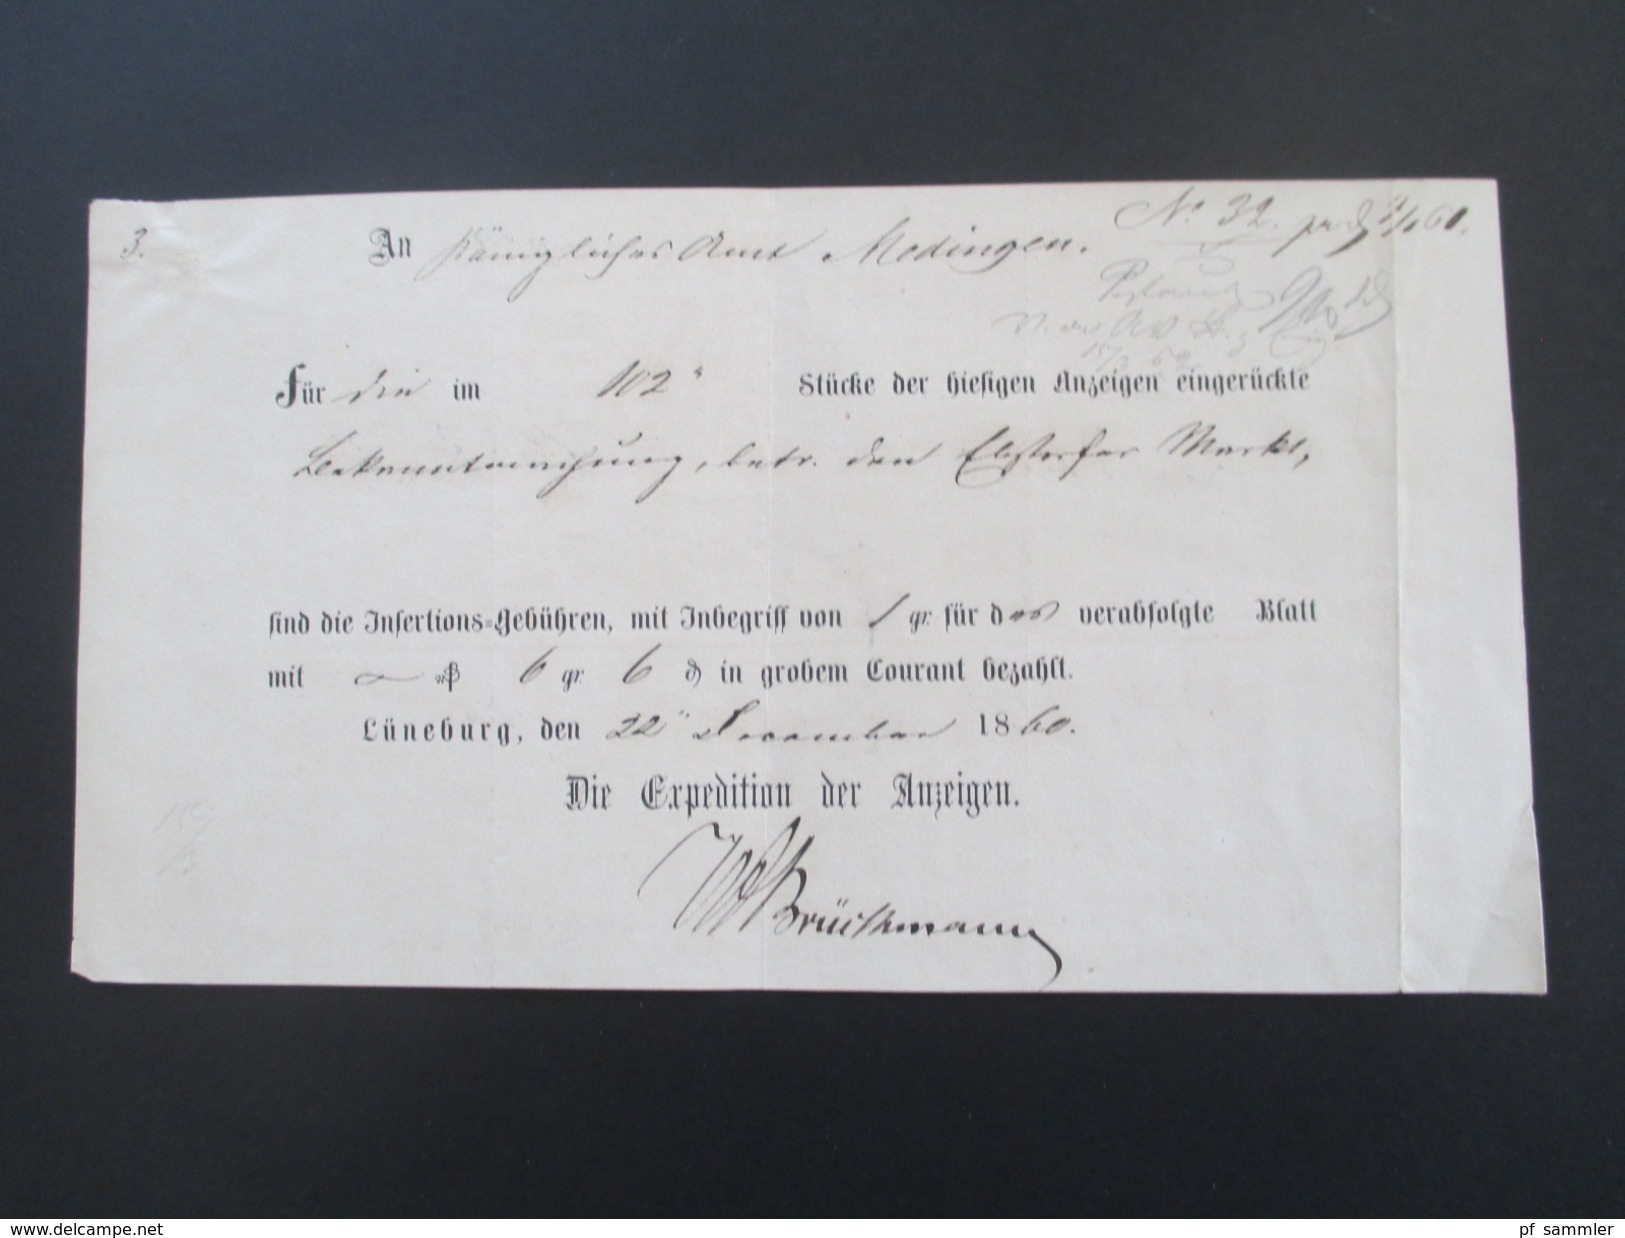 3.
No. 32.
An Königliches Amt Medingen.
Für die im 102" Stücke der hiesigen Anzeigen eingerückte
Bekanntmachung, betr. den Ebstorfer Markt,
sind die Insertions-Gebühren, mit Inbegriff von 1 gr. für das verabfolgte Blatt
mit — 6 gr. 6 ₰ in grobem Courant bezahlt.
Lüneburg, den 22" December 1860.
Die Expedition der Anzeigen.
Brückmann
www.delcampe.net
pf_sammler